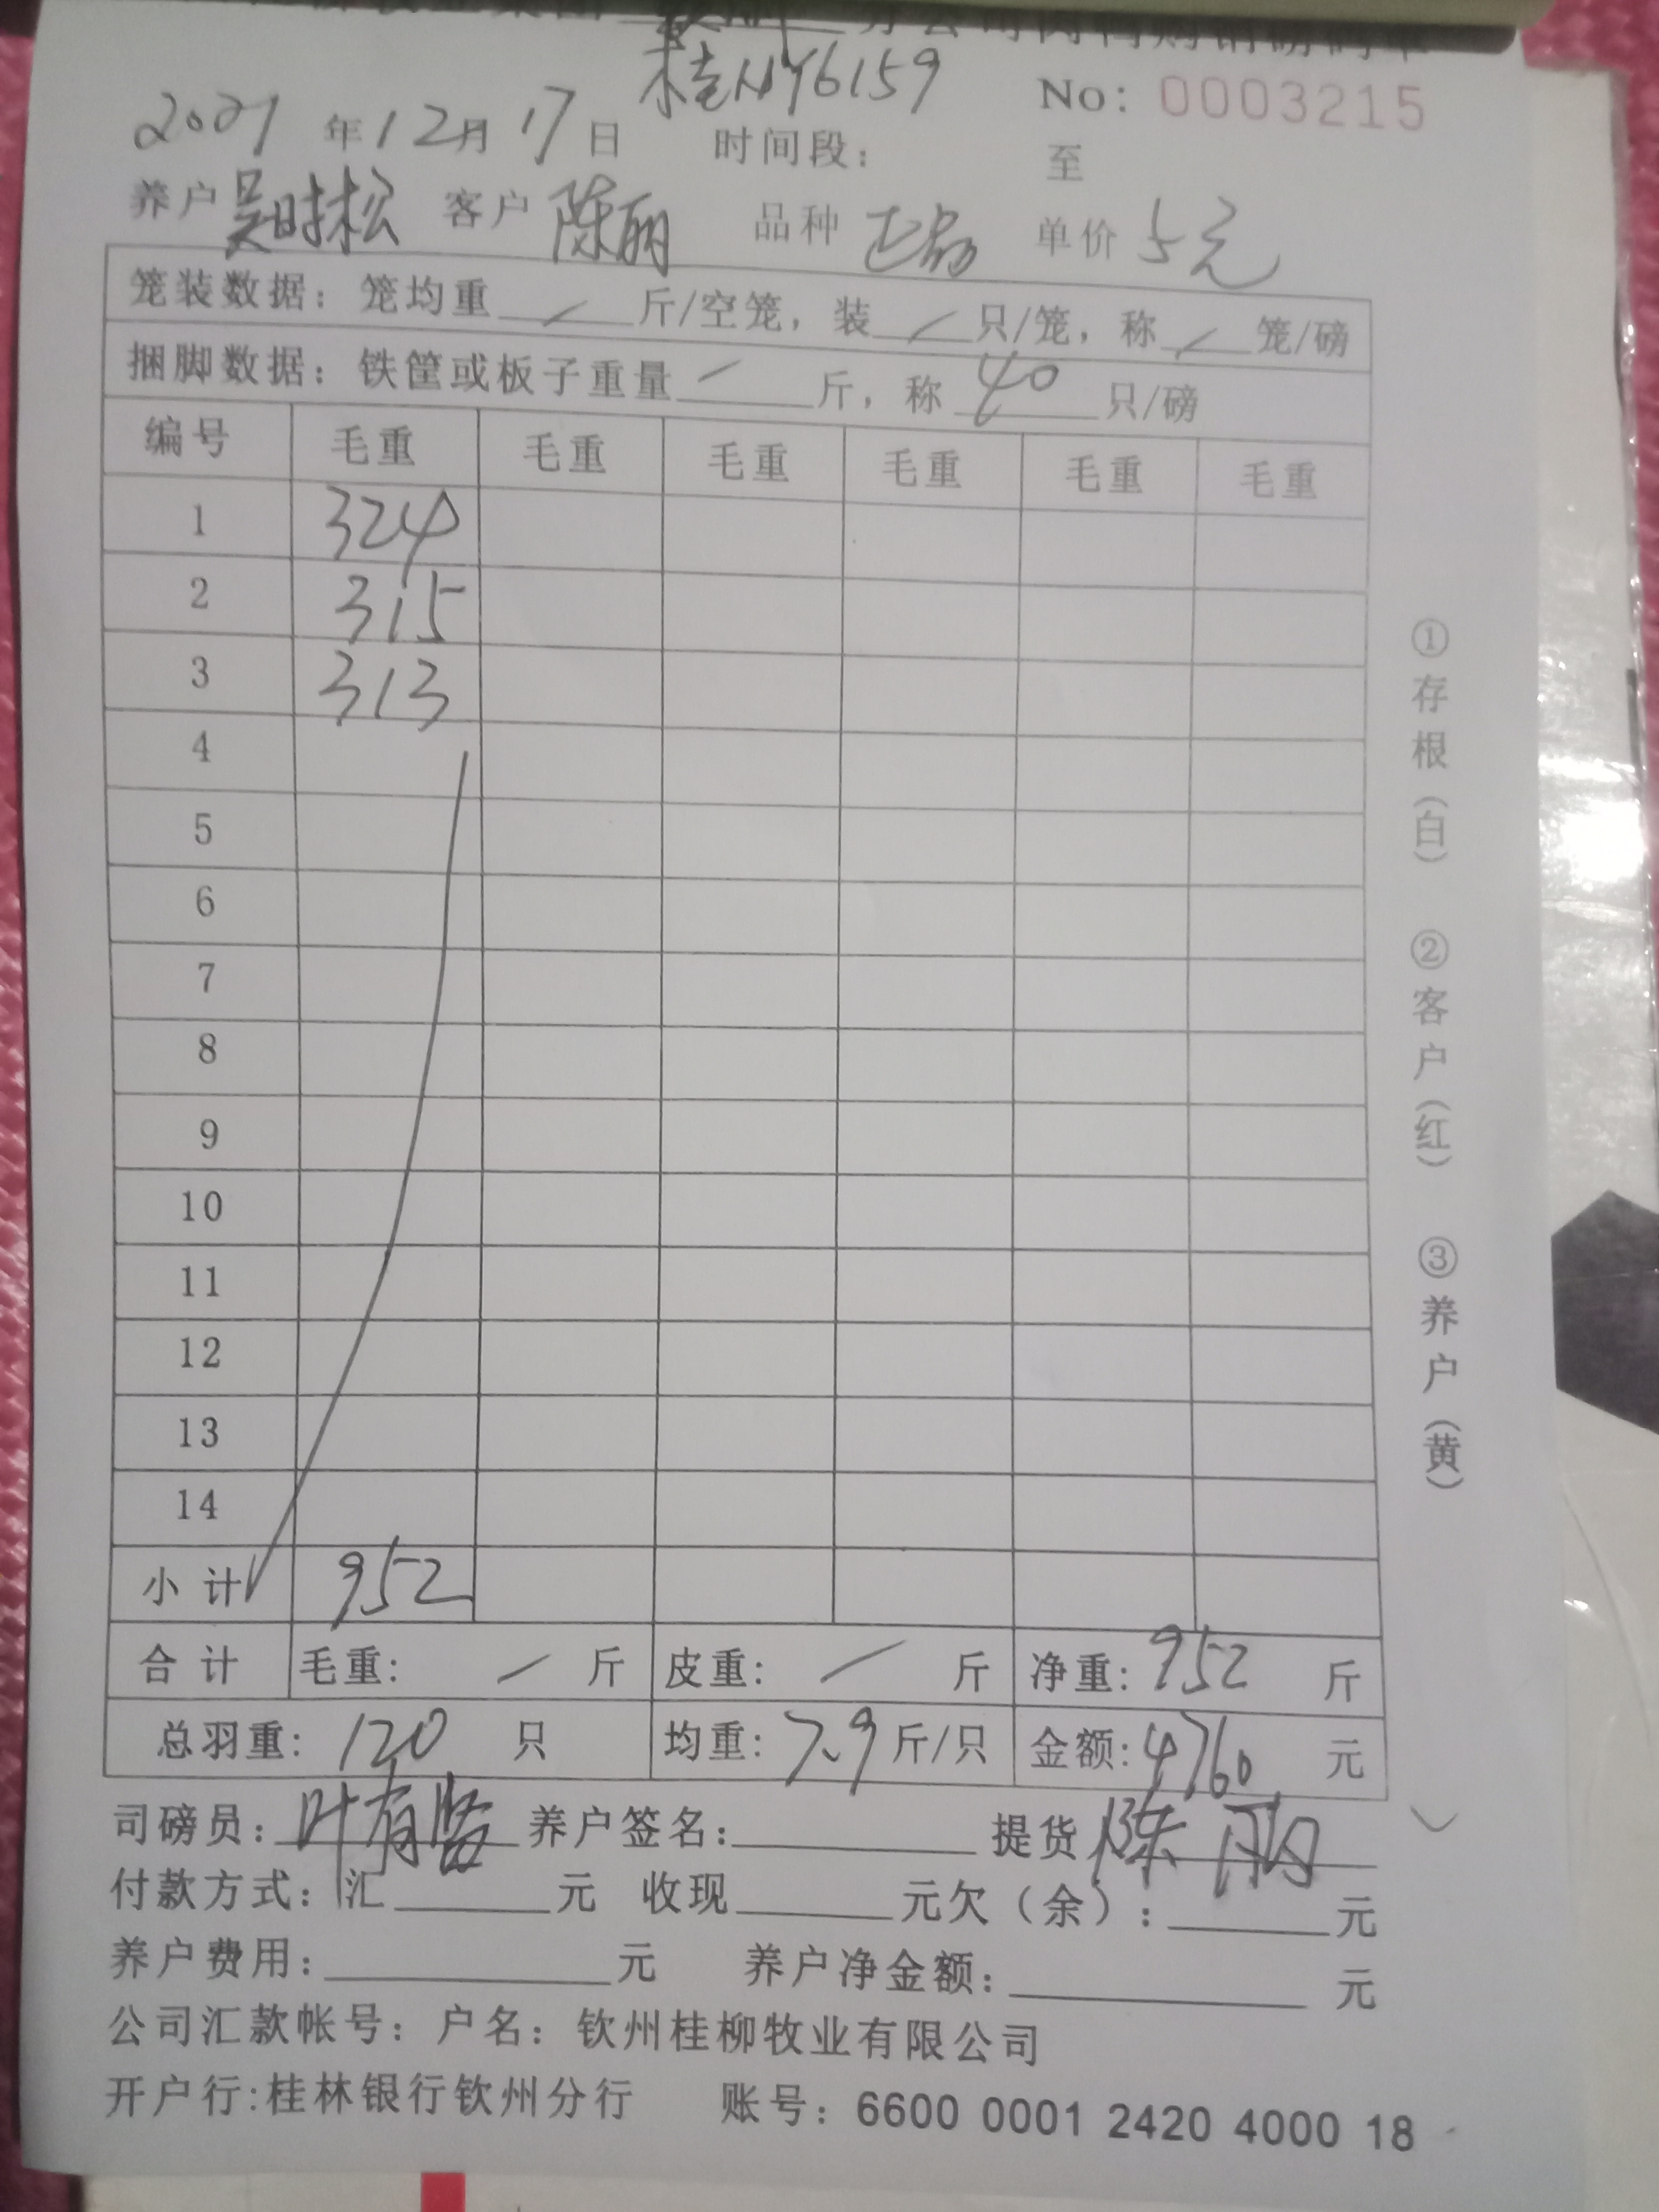 桂NY6159
No: 0003215
2021年12月17日 时间段: 至
养户 吴时松 客户 陈丽 品种 正品 单价 5元
笼装数据: 笼均重 / 斤/空笼, 装 / 只/笼, 称 / 笼/磅
捆脚数据: 铁筐或板子重量 / 斤, 称 40 只/磅
编号 毛重 毛重 毛重 毛重 毛重 毛重
1 324
2 315
3 313
4
5
6
7
8
9
10
11
12
13
14
小计 952
合计 毛重: / 斤 皮重: / 斤 净重: 952 斤
总羽重: 120 只 均重: 7.9 斤/只 金额: 4760 元
司磅员: 叶有 养户签名: 提货 陈丽
付款方式: 汇 元 收现 元欠(余): 元
养户费用: 元 养户净金额: 元
公司汇款帐号: 户名: 钦州桂柳牧业有限公司
开户行:桂林银行钦州分行 账号: 6600 0001 2420 4000 18
①存根(白) ②客户(红) ③养户(黄)